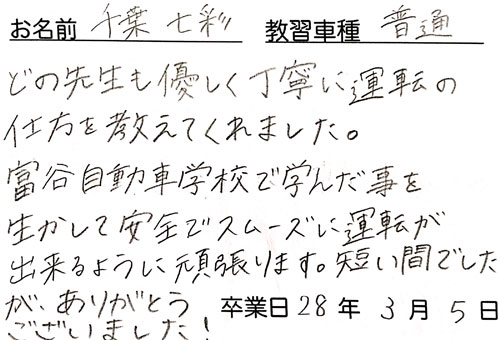 お名前 千葉 七彩 教習車種 普通
どの先生も優しく丁寧に運転の
仕方を教えてくれました。
富谷自動車学校で学んだ事を
生かして安全でスムーズに運転が
出来るように頑張ります。短い間でした
が、ありがとう
ございました! 卒業日 28 年 3 月 5 日